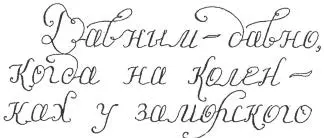 Давным-давно,
когда на колен-
ках у заморского